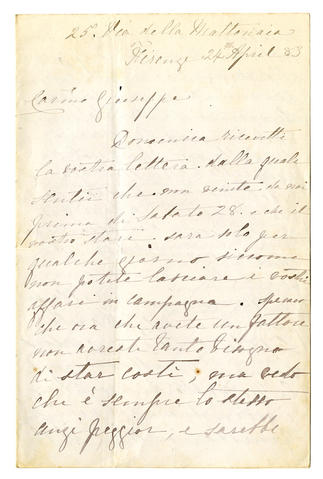 25. Via della Mattonaia
Firenze 24th April 83
Carino Giuseppe
Domenica ricevetti
la vostra lettera. dalla quale
sentii che non venite da noi
prima di Sabato 28. e che il
vostro stare. sarà solo per
qualche giorno siccome
non potete lasciare i vostri
affari in campagna. speravo
che ora che avete un fattore
non avreste tanto bisogno
di star costì, ma vedo
che è sempre lo stesso
anzi peggior, e sarebbe